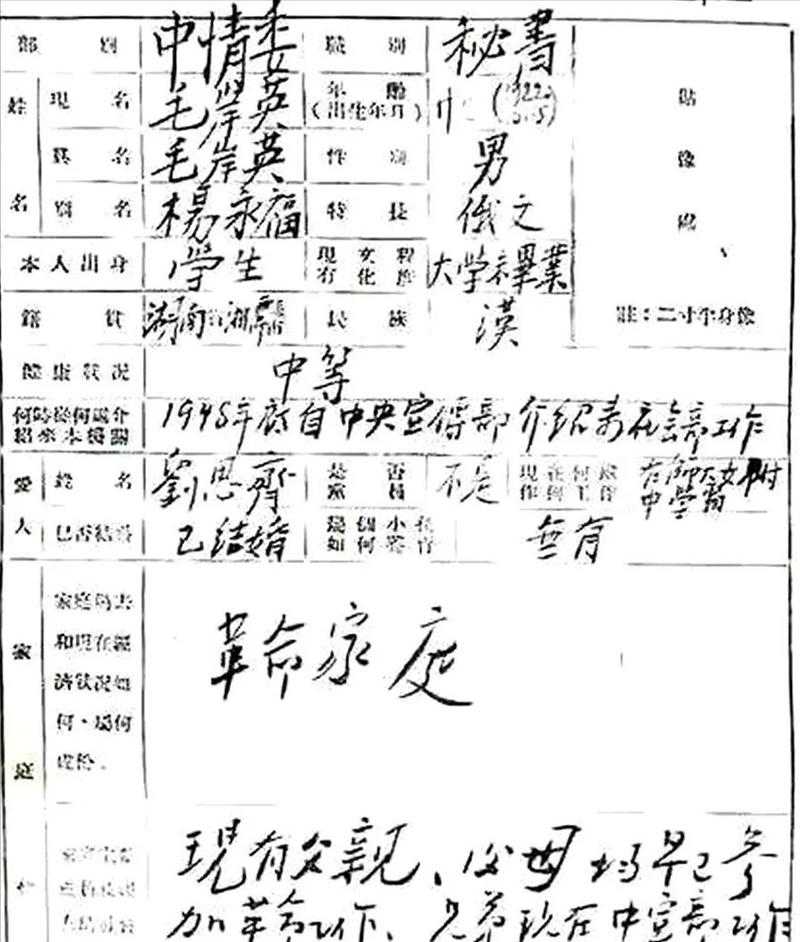 部別 中情委 職別 秘書
姓名 現名 毛岸英 年齡(出生年月)
貼像處
真名 毛岸英 性別 男
別名 楊永福 特長 俄文
本人出身 學生 現有文化程度 大学未畢業
籍貫 湖南 湘 民族 漢
註：二寸半身像
健康狀況 中等
何時從何處介紹來本機關 1948年底自中央宣傳部介紹来社会部工作
愛人 姓名 劉思齊 是否黨員 不是 現在何處作何工作 在師大女附中學習
已否結婚 已結婚 幾個小孩如何教育 無有
家庭 家庭過去和現在經濟狀況如何，屬何成份。 革命家庭
現有父親、父母均早已参
加革命工作、兄弟現在中宣部工作